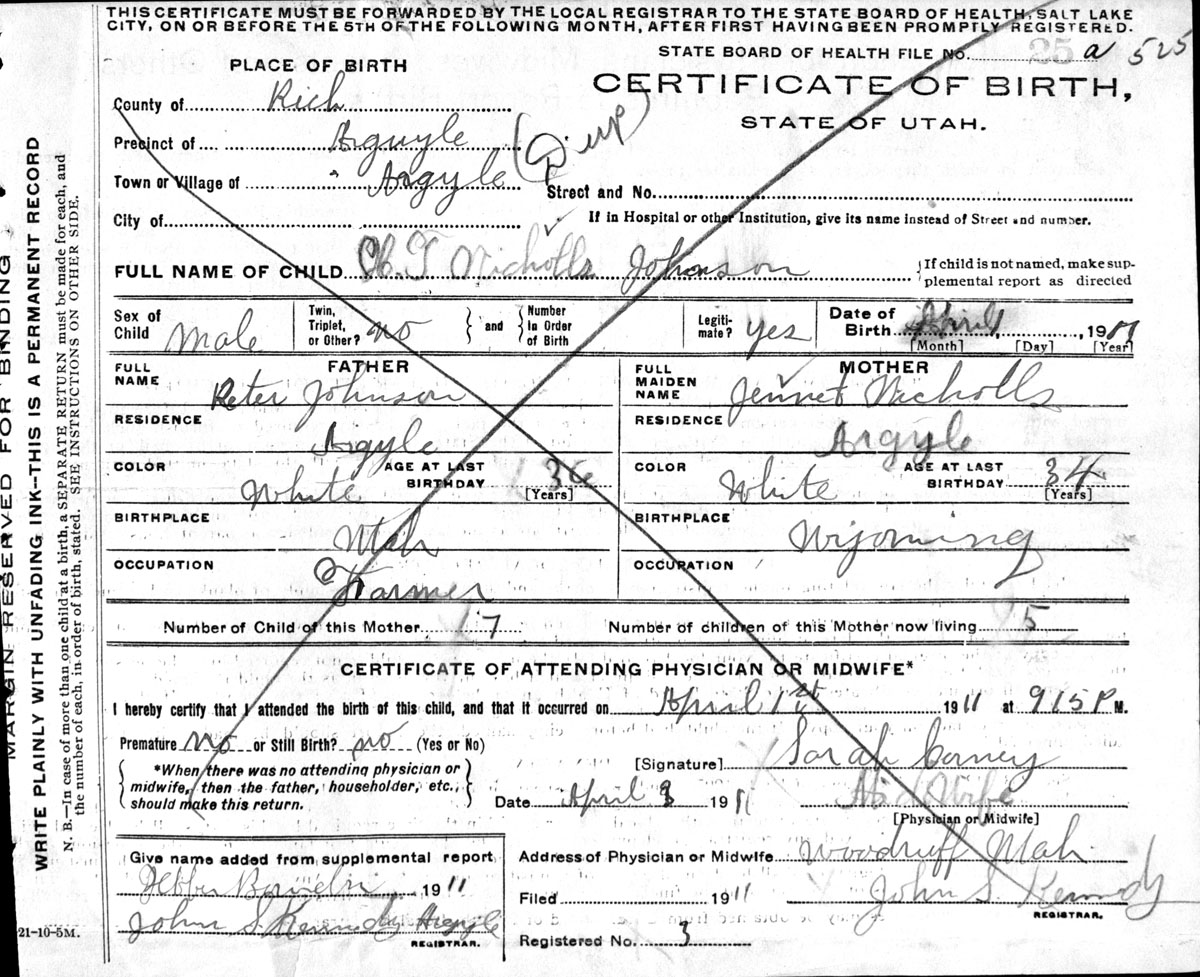 THIS CERTIFICATE MUST BE FORWARDED BY THE LOCAL REGISTRAR TO THE STATE BOARD OF HEALTH, SALT LAKE
CITY, ON OR BEFORE THE 5TH OF THE FOLLOWING MONTH, AFTER FIRST HAVING BEEN PROMPTLY REGISTERED.
STATE BOARD OF HEALTH FILE No. 25 a 525
PLACE OF BIRTH
CERTIFICATE OF BIRTH,
STATE OF UTAH.
County of Rich
Precinct of Arguyle (Dup)
Town or Village of Argyle Street and No.
City of If in Hospital or other Institution, give its name instead of Street and number.
FULL NAME OF CHILD Nicholls Johnson {If child is not named, make sup-
plemental report as directed
Sex of Child Male Twin, Triplet, or Other? no } and { Number In Order of Birth Legiti-mate? yes Date of Birth April, 1911
[Month] [Day] [Year]
FATHER MOTHER
FULL NAME Peter Johnson FULL MAIDEN NAME Jennet Nicholls
RESIDENCE Argyle RESIDENCE Argyle
COLOR White AGE AT LAST BIRTHDAY 36 [Years] COLOR White AGE AT LAST BIRTHDAY 34 [Years]
BIRTHPLACE Utah BIRTHPLACE Wyoming
OCCUPATION Farmer OCCUPATION
Number of Child of this Mother 7 Number of children of this Mother now living 5
CERTIFICATE OF ATTENDING PHYSICIAN OR MIDWIFE*
I hereby certify that I attended the birth of this child, and that it occurred on April 1st 1911 at 915 P M.
Premature no or Still Birth? no (Yes or No)
[Signature] Sarah Corney
{ *When there was no attending physician or
midwife, then the father, householder, etc.,
should make this return. }
Date April 3 1911 Mid Wife
[Physician or Midwife]
Give name added from supplemental report
1911
John S. Kennedy Argyle
REGISTRAR.
Address of Physician or Midwife Woodruff Utah
Filed 1911 John S. Kennedy
REGISTRAR.
Registered No. 3
21-10-5M.
MARGIN RESERVED FOR BINDING
WRITE PLAINLY WITH UNFADING INK—THIS IS A PERMANENT RECORD
N. B.—In case of more than one child at a birth, a SEPARATE RETURN must be made for each, and
the number of each, in order of birth, stated. SEE INSTRUCTIONS ON OTHER SIDE.